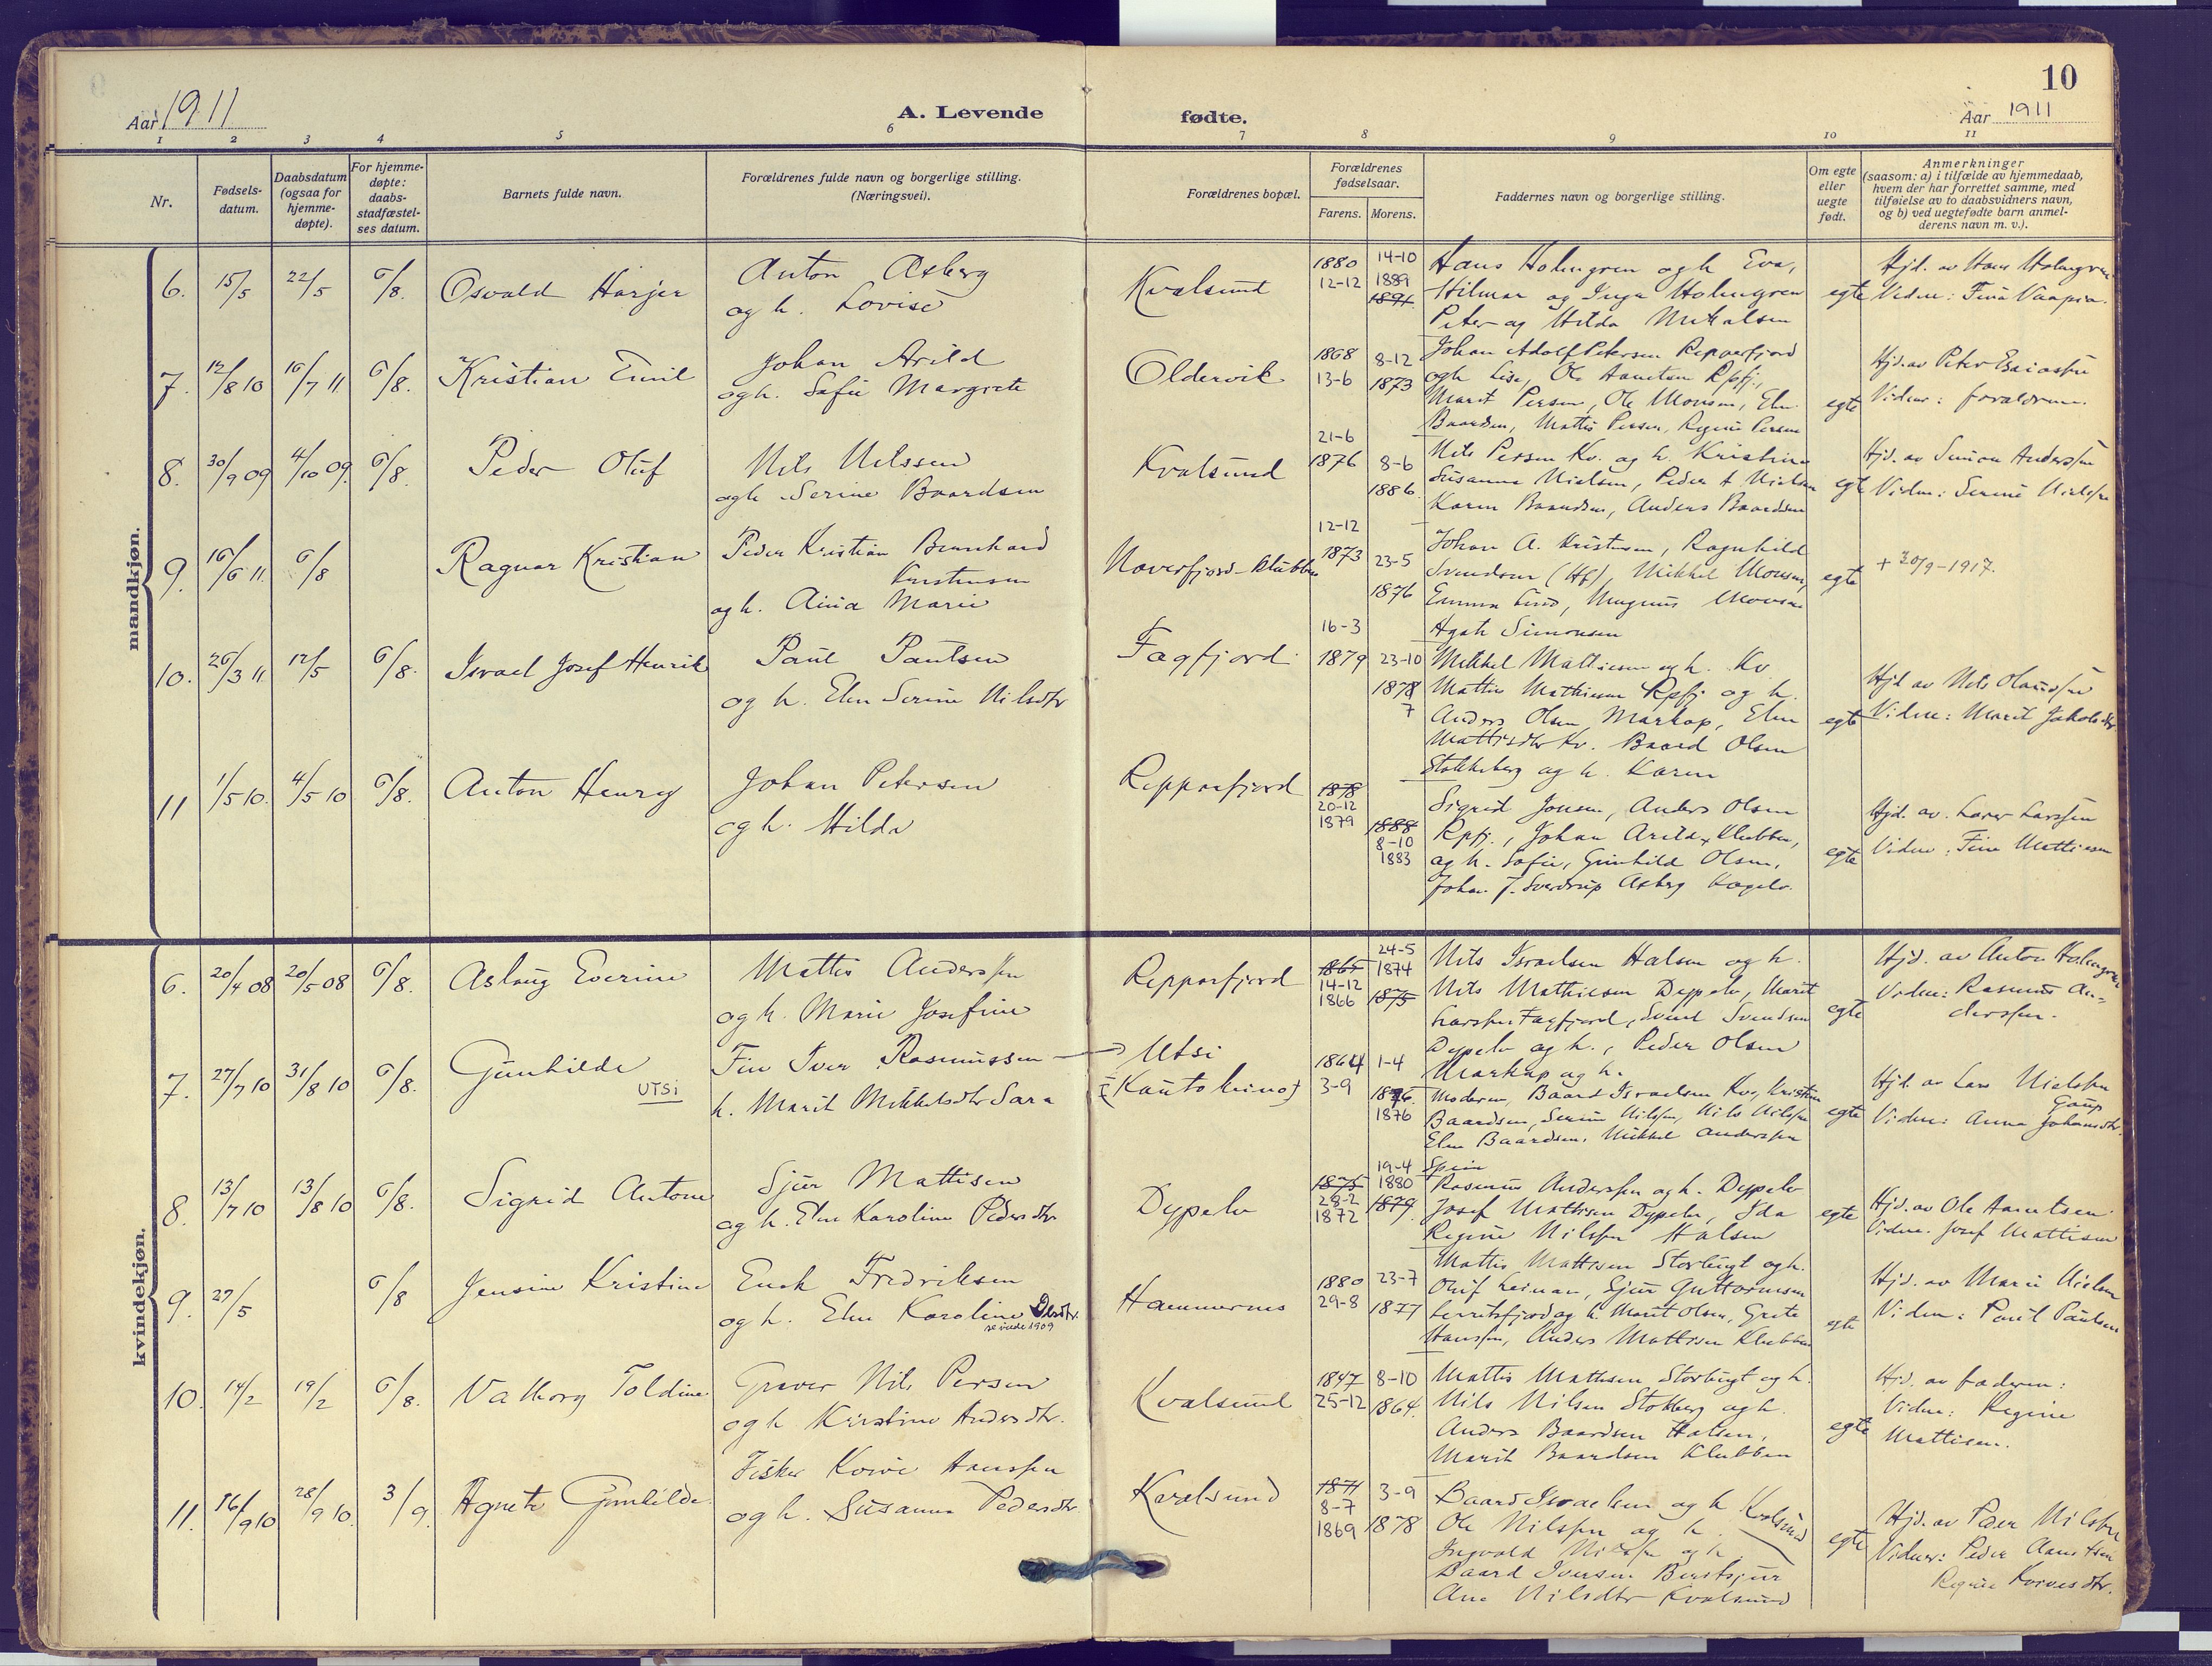 10
Aar 1911
A. Levende
fødte.
Aar 1911
1 2 3 4 5 6 7 8 9 10 11
Nr.
Fødsels-
datum.
Daabsdatum
(ogsaa for
hjemme-
døpte).
For hjemme-
døpte:
daabs-
stadfæstel-
ses datum.
Barnets fulde navn.
Forældrenes fulde navn og borgerlige stilling.
(Næringsvei).
Forældrenes bopæl.
Forældrenes
fødselsaar.
Farens. Morens.
Faddernes navn og borgerlige stilling.
Om egte
eller
uegte
født.
Anmerkninger
(saasom: a) i tilfælde av hjemmedaab,
hvem der har forrettet samme, med
tilføielse av to daabsvidners navn,
og b) ved uegtefødte barn anmel-
derens navn m. v.).
mandkjøn.
6. 15/5 22/5 6/8. Osvald Harjer
Anton Axberg
og h. Lovise
Kvalsund
1880
12-12
14-10
1889
1891
Hans Holmgren og h Eva,
Hilmar og Inga Holmgren
Peter og Hilda Mikalsen
egte
Hjd. av Hans Holmgren
7. 12/8 10 16/7 11 6/8. Kristian Emil
Johan Arild
og h. Sofie Margrete
Oldervik
1868
13-6
8-12
1873
Johan Adolf Petersen Repparfjord
og h Lise, Ole Rpfj.,
Marit Persen, Ole Monsen, Elen
Baardsen, Mattis Persen, Regine Persen
egte
Hjd. av Peter
Vidner: forældrene.
8. 30/9 09 4/10 09. 6/8. Peder Oluf
Nils Nilssen
og h Serine Baardsen
Kvalsund
21-6
1876
8-6
1886.
Nils Persen Kv. og h. Kristine
Susanna Nielsen, Peder A Nielsen
Karen Baardsen, Anders Baardsen
egte
Hjd. av Simon Anderssen
Vidne: Serine Nielssen
9. 16/6 11. 6/8 Ragnar Kristian
Peder Kristian Bernhard
Kristensen
og h. Aina Marie
Noverfjord-Klubben
12-12
1873
23-5
1876
Johan A. Kristensen, Ragnhild
Svendsen (Hf), Mikkel Monsen,
Emma Lind, Magnus Monsen
Agate Simonsen
egte
+ 30/9-1917.
10. 26/3 11. 12/5 6/8. Israel Josef Henrik
Paul Paulsen
og h. Elen Serine Nilsdtr
Fægfjord
16-3
1879
23-10
1878
7
Mikkel Mathiesen og h. Kv.
Mattis Mathiesen Rpfj og h.
Anders Olsen Markop, Elen
Mattisdtr Kv. Baard Olsen
Stokkeberg og h. Karen
egte
Hjd av Nils
Vidne: Marit Jakobsdtr
11 1/5 10. 4/5 10 6/8. Anton Henry
Johan Petersen
og h. Hilda
Repparfjord
1878
20-12
1879
1888
8-10
1883
Sigrid Jonsen, Anders Olsen
Rpfj., Johan Arild, Klubben,
og h. Sofie, Gunhild Olsen,
Johan J. Sverdrup Axberg
egte
Hjd. av. Lars Larssen
Vidne: Fine Mattisen
kvindekjøn.
6. 20/4 08 20/5 08 6/8. Aslaug Everine
Mattis Anderssen
og h. Marie Josefine
Repparfjord
1865
14-12
1866
24-5
1874
1875
Nils Israelsen Halsen og h.
Nils Mathiesen Dypelv, Marit
Larssen Fægfjord, Svend Svendsen
Dypelv og h., Peder Olsen
Markop og h.
egte
Hjd. av Anton Holmgren
Vidne: Rasmus An-
derssen.
7. 27/7 10 31/8 10 6/8. Gunhilde
UTSI
Fin Iver Rasmussen → Utsi
h. Marit Mikkelsdtr Sara
(Kautokeino)
1864
3-9
1-4
1876.
1876
Moderen, Baard Israelsen Kv, Kristine
Baardsen, Serine Nilssen, Nils Nilssen
Elen Baardsen, Mikkel Anderssen
egte
Hjd. av Lars Nielssen
Gaup
Vidne: Anna Johansdtr.
8. 13/7 10 13/8 10 6/8. Sigrid Antone
Sjur Mattisen
og h. Elen Karoline Pedersdtr
Dypelv
1875
28-2
1872
19-4
1880
1879.
Rasmus Anderssen og h. Dypelv
Josef Mathisen Dypelv, Ida
Regine Nilssen Halsen
egte
Hjd. av Ole
Vidne. Josef Mattisen
9. 27/5 6/8 Jensine Kristine
Enok Fredriksen
og h. Elen Karoline Olsdtr.
se viede 1909
Hammernes
1880
29-8
23-7
1877
Mattis Mattisen Storbugt og h.
Sjur Guttormsen
og h. Marit Olsen, Grete
Hanssen, Anders Mattisen Klubben
egte
Hjd. av Marie Nielsen
Vidne: Paul Paulsen
10. 14/2 19/2 6/8. Valborg Toldine
Graver Nils Persen
og h Kirstine Andersdtr.
Kvalsund
1847
25-12
8-10
1864.
Mattis Mathisen Storbugt og h.
Nils Nilsen Stokberg og h.
Anders Baardsen Halsen,
Marit Baardsen Klubben
egte
Hjd. av faderen:
Vidne: Regine
Mattisen.
11. 16/9 10 28/9 10. 3/9. Agnete Gunhilde.
Fisker Koive Hanssen
og h. Susanna Pedersdtr.
Kvalsund
1871
8-7
1869
3-9
1878
Baard Israelsen og h Kvalsund
Ole Nilssen og h.
Ingvald Nilssen og h
Baard Iversen
Ane Nilsdtr Kvalsund
egte
Hjd. av Peder Nilssen
Vidner: Peder
Regine Koivesdtr.